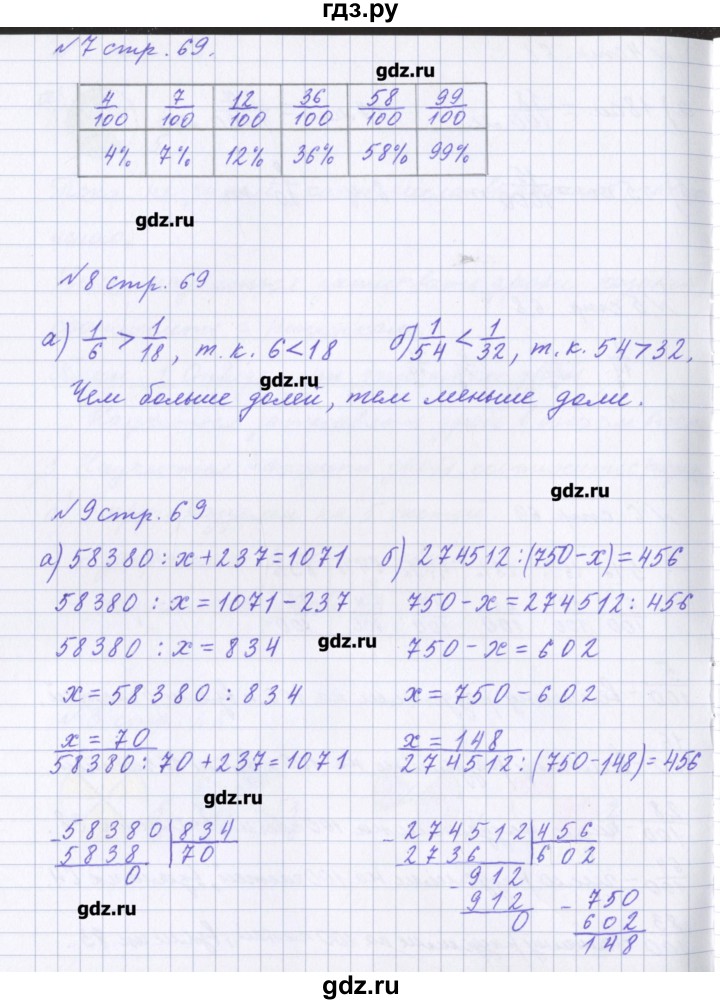 гдз.ру
№7 стр. 69.
gdz.ru
4/100 7/100 12/100 36/100 58/100 99/100
4% 7% 12% 36% 58% 99%
gdz.ru
№8 стр. 69
а) 1/6 > 1/18, т.к. 6<18 б) 1/54 < 1/32, т.к. 54>32.
gdz.ru
Чем больше долей, тем меньше доли.
gdz.ru
№9 стр. 69
а) 58380:x+237=1071 б) 274512:(750-x)=456
58380 : x = 1071-237 750-x = 274512: 456
58380 : x = 834 gdz.ru 750-x = 602
x = 58380 : 834 x = 750-602
x = 70 x = 148
58380:70+237=1071 274512:(750-148)=456
gdz.ru
-58380 834 -274512 456
5838 70 2736 602
0 -912
gdz.ru 912 -750
0 602
148
gdz.ru